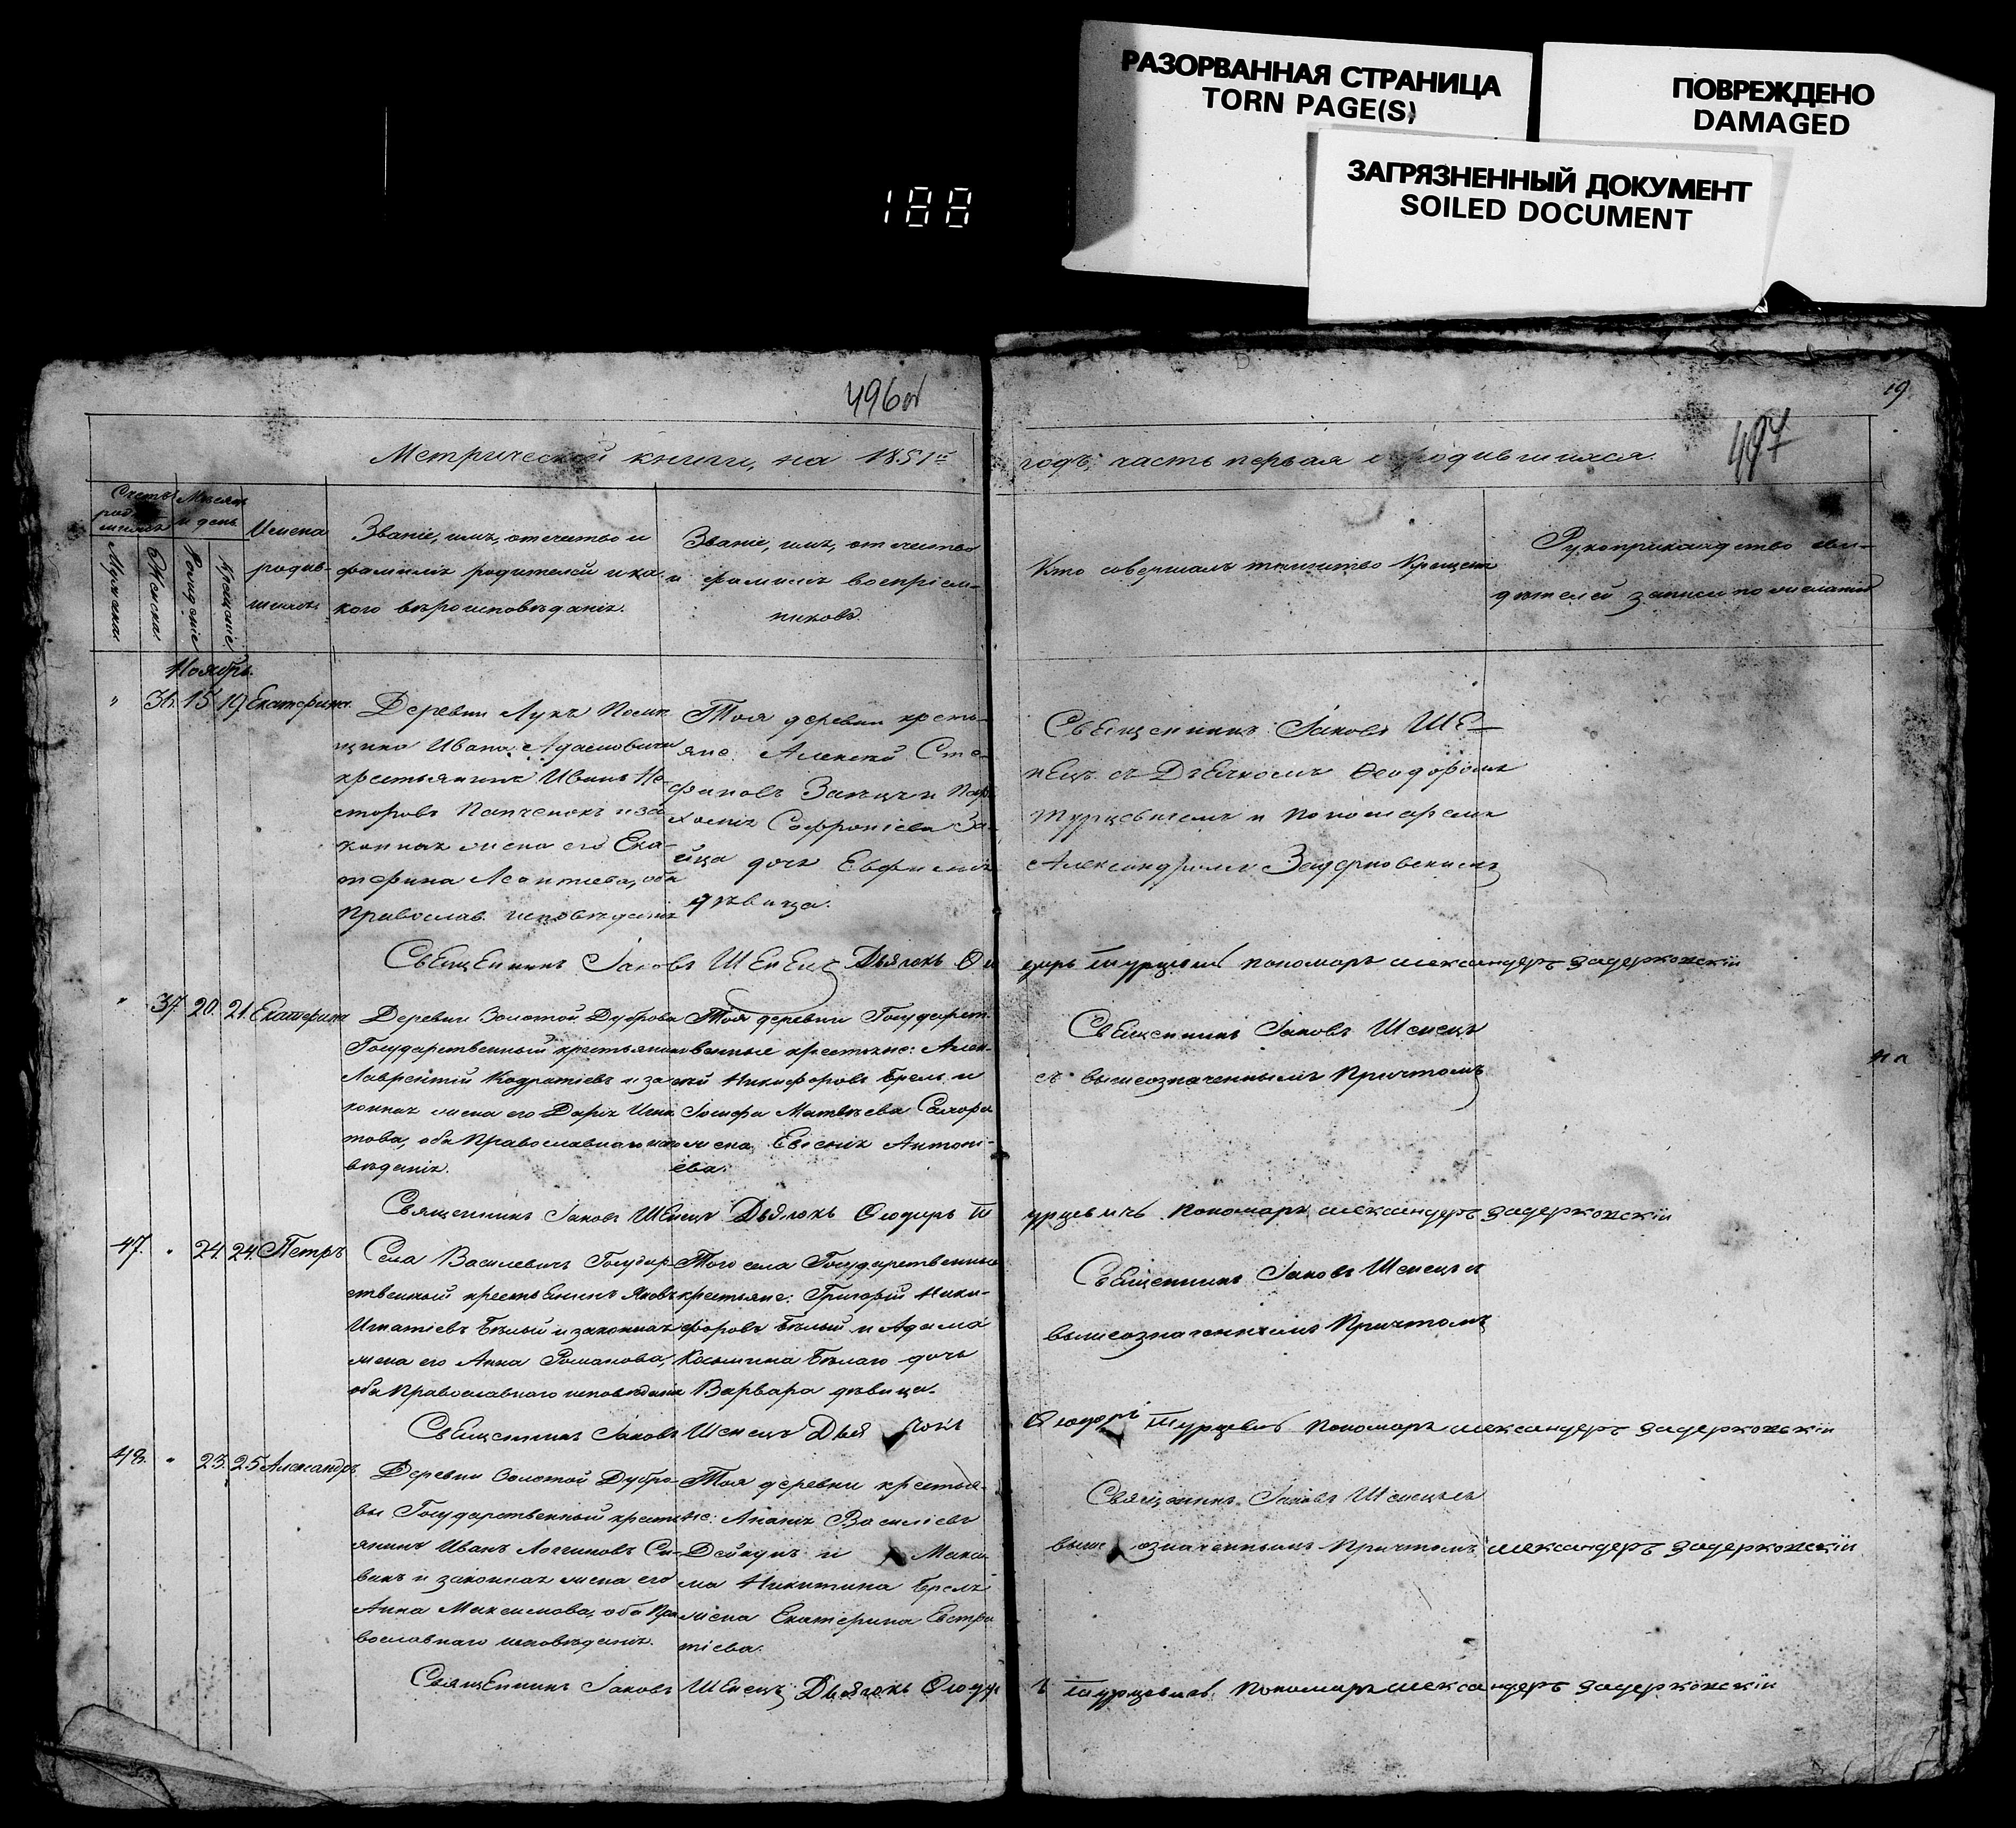 РАЗОРВАННАЯ СТРАНИЦА
TORN PAGE(S)
ПОВРЕЖДЕНО
DAMAGED
ЗАГРЯЗНЕННЫЙ ДОКУМЕНТ
SOILED DOCUMENT
188
496об
19
497
Метрической книги, на 1851й годъ, часть первая о родившихся.
Счетъ родившихся
Мужеска.
Женска.
Мѣсяцъ и день
Рожденіе
Крещеніе
Имена
родив-
шихся.
Званіе, имя, отчество и
фамилія родителей и ка-
кого вѣроисповѣданія.
Званіе, имя, отчество
и фамилія воспріем-
никовъ.
Кто совершалъ таинство Крещенія
Рукоприкладство сви-
дѣтелей записи по желанію
Ноябрь.
" 36. 15 19 Екатерина.
Деревни Лукъ Помѣ-
щика Ивана
крестьянинъ Иванъ Не-
сторовъ Папченокъ и за-
конная жена его Ека-
терина Леонтіева, оба
Православ. исповѣданія
Тоя деревни кресть-
яне: Алексей Сте-
фановъ Заецъ и Пар-
хоміа Софроніева За-
йца дочь Евфимія
дѣвица.
Священникъ Іаковъ Ше-
нецъ съ Дьячкомъ Ѳеодоромъ
Турцевичемъ и Пономаремъ
Александромъ Задерковскимъ
Священникъ Іаковъ Шенецъ Дьячокъ Ѳеодоръ Турцевичъ пономаръ александеръ задерковскій
" 37. 20. 21. Екатерина
Деревни Золотой Дубровы
Государственный крестьянинъ
Лаврентій Кодратіевъ и за-
конная жена его Дарія Игна-
това, оба Православнаго испо-
вѣданія.
Тоя деревни Государст-
венные крестьяне: Алек-
сей Никифоровъ Брель и
Іосифа Матвѣева
жена Евгенія Антоні-
ева.
Священникъ Іаковъ Шенецъ
съ вышеозначеннымъ Причтомъ
Священникъ Іаковъ Шенецъ Дьячокъ Ѳеодоръ Турцевичъ Пономаръ александеръ задерковскій
47. " 24. 24. Петръ
Села Василевичъ Государ-
ственный крестьянинъ Яковъ
Игнатіевъ Бѣлый и законная
жена его Анна Романова,
оба Православнаго исповѣданія
Того села Государственные
крестьяне: Григорій Ники-
форовъ Бѣлый и Адама
Косьмина Бѣлаго дочь
Варвара дѣвица.
Священникъ Іаковъ Шенецъ съ
вышеозначеннымъ Причтомъ
Священникъ Іаковъ Шенецъ Дьячокъ Ѳеодоръ Турцевичъ пономаръ александеръ задерковскій
48. " 23. 25 Александръ
Деревни Золотой Дубро-
вы Государственный кресть-
янинъ Иванъ Логиновъ Си-
вакъ и законная жена его
Анна Максимова, оба Пра-
вославнаго исповѣданія.
Тоя деревни крестья-
не: Ананія Василіевъ
Дейкунъ и Макси-
ма Никитина Брель
жена Екатерина Евстра-
тіева.
Священникъ Іаковъ Шенецъ съ
вышеозначеннымъ Причтомъ александеръ задерковскій
Священникъ Іаковъ Шенецъ Дьячокъ Ѳеодоръ Турцевичъ пономаръ александеръ задерковскій